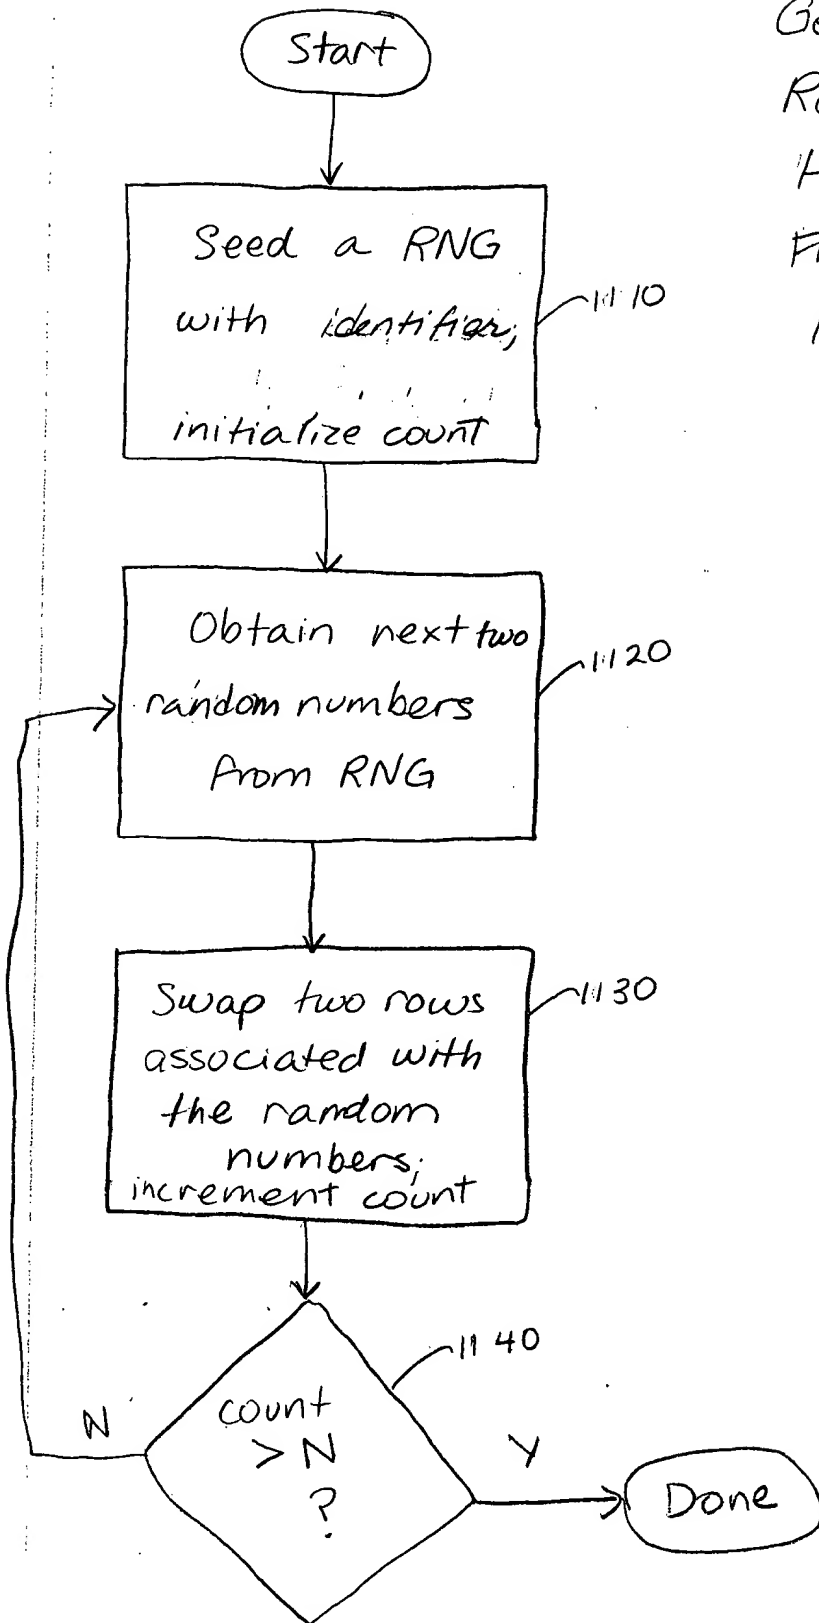 Start
Seed a RNG
with identifier;
initialize count
1110
Obtain next two
random numbers
from RNG
1120
Swap two rows
associated with
the random
numbers;
increment count
1130
count
> N
?
1140
N
Y
Done